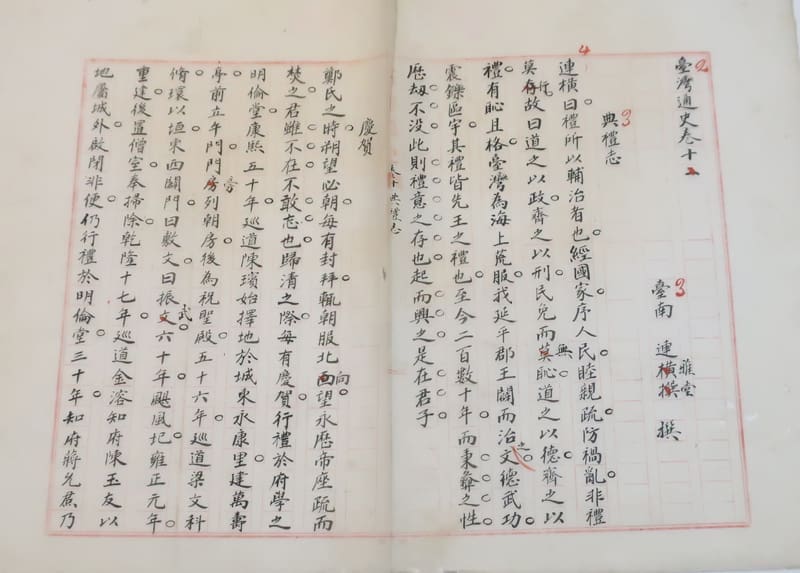 2
臺灣通史卷十
3 臺南 連雅堂 撰
3 典禮志
4
連橫曰禮所以輔治者也。經國家序人民睦親疏防禍亂非禮
莫行故曰道之以政齊之以刑民免而無恥道之以德齊之以
禮有恥且格。臺灣為海上荒服我延平郡王闢而治之文德武功
震鑠區宇其禮皆先王之禮也。至今二百數十年而秉彝之性
歷劫不沒此則禮意之存也起而興之是在君子
卷十典禮志
慶賀
鄭氏之時朔望必朝。每有封拜輒朝服北向望永歷帝座疏而
焚之。君雖不在不敢忘也。歸清之際每有慶賀行禮於府學之
明倫堂。康熙五十年巡道陳璸始擇地於城東永康里建萬壽
亭。前立午門門旁列朝房。後為祝聖殿。五十六年巡道梁文科
脩。環以垣東西闢門曰敷文曰振武。六十年颶風圮。雍正元年
重建後置僧室奉掃除。乾隆十七年巡道金溶知府陳玉友以
地屬城外啟閉非便。仍行禮於明倫堂。三十年知府蔣允焄乃